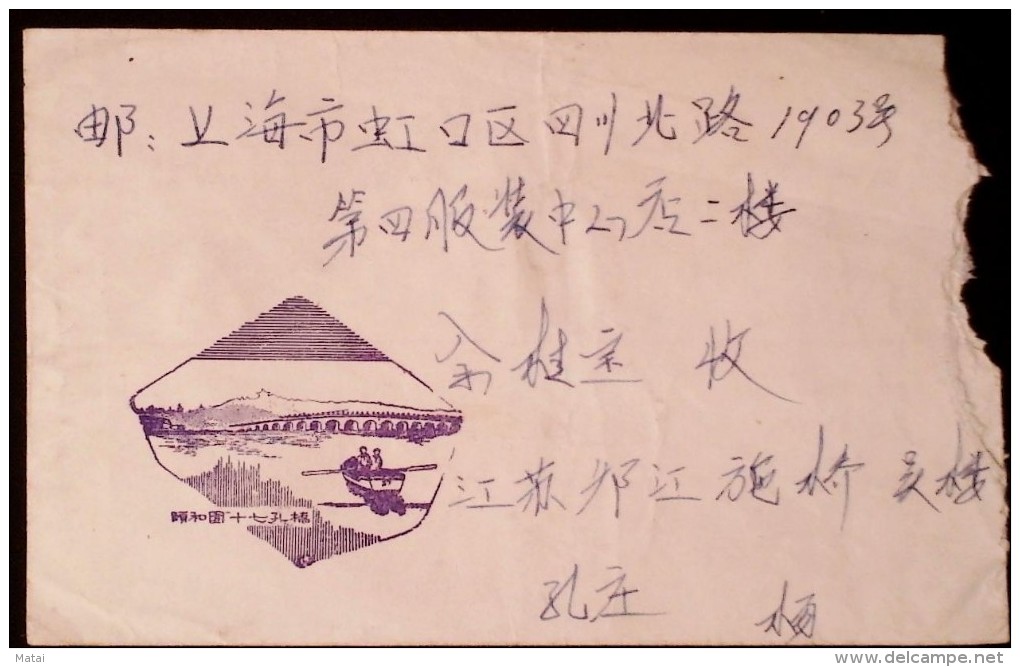 邮:上海市虹口区四川北路1903号
第四服装中心店二楼
余桂宝 收
江苏邗江施桥吴楼
孔庄 梅
頤和園十七孔橋
Matai
delcampe.net